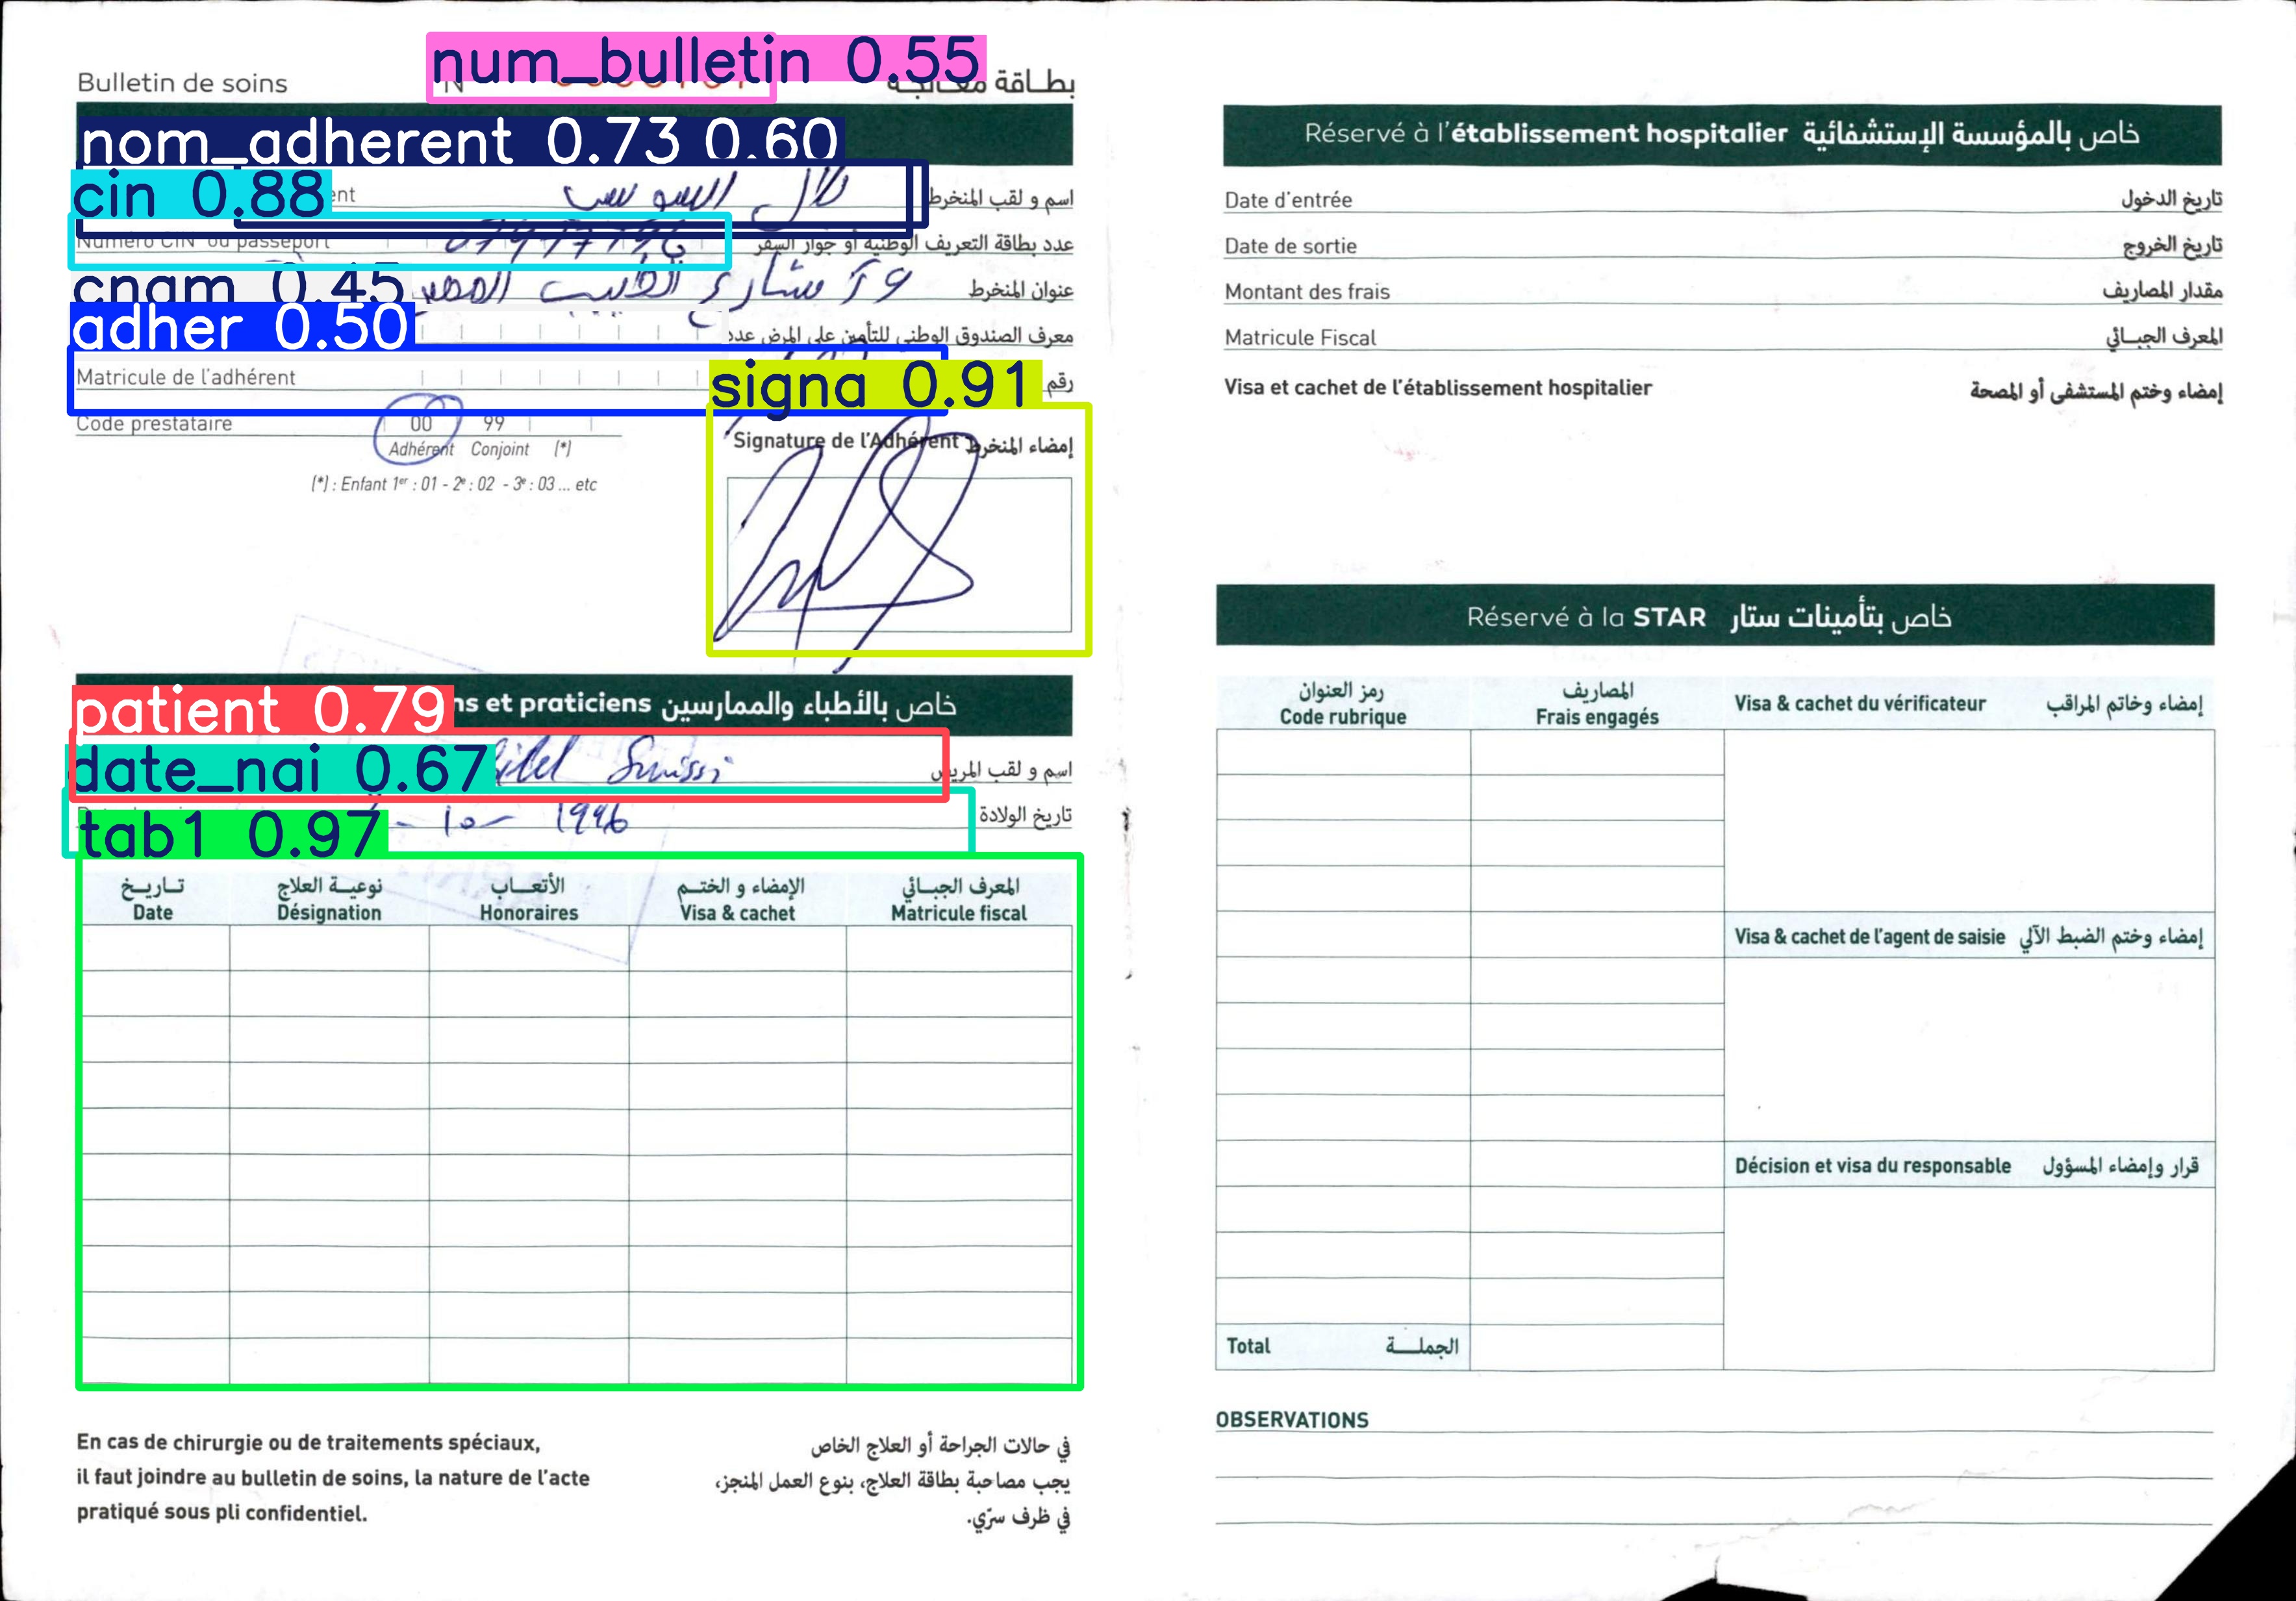 num_bulletin 0.55
Bulletin de soins
بطاقة معالجة
nom_adherent 0.73 0.60
اسم و لقب المنخرط
cin 0.88
Numéro CIN ou passeport
عدد بطاقة التعريف الوطنية أو جواز السفر
cnam 0.45
شارع الطيب
عنوان المنخرط
adher 0.50
معرف الصندوق الوطني للتأمين على المرض عدد
Matricule de l'adhérent
signa 0.91
رقم
Code prestataire 00 99
Adhérent Conjoint (*)
(*) : Enfant 1er : 01 - 2e : 02 - 3e : 03 ... etc
Signature de l'Adhérent إمضاء المنخرط
patient 0.79
ns et praticiens خاص بالأطباء والممارسين
date_nai 0.67
Suissi
اسم و لقب المريض
tab1 0.97
- 10 - 1996
تاريخ الولادة
تاريخ نوعية العلاج الأتعاب الإمضاء و الختم المعرف الجبائي
Date Désignation Honoraires Visa & cachet Matricule fiscal
En cas de chirurgie ou de traitements spéciaux,
il faut joindre au bulletin de soins, la nature de l'acte
pratiqué sous pli confidentiel.
في حالات الجراحة أو العلاج الخاص
يجب مصاحبة بطاقة العلاج، بنوع العمل المنجز،
في ظرف سرّي.
Réservé à l'établissement hospitalier خاص بالمؤسسة الإستشفائية
Date d'entrée تاريخ الدخول
Date de sortie تاريخ الخروج
Montant des frais مقدار المصاريف
Matricule Fiscal المعرف الجبائي
Visa et cachet de l'établissement hospitalier إمضاء وختم المستشفى أو المصحة
Réservé à la STAR خاص بتأمينات ستار
رمز العنوان المصاريف
Code rubrique Frais engagés
Visa & cachet du vérificateur إمضاء وخاتم المراقب
Visa & cachet de l'agent de saisie إمضاء وختم الضبط الآلي
Décision et visa du responsable قرار وإمضاء المسؤول
Total الجملة
OBSERVATIONS